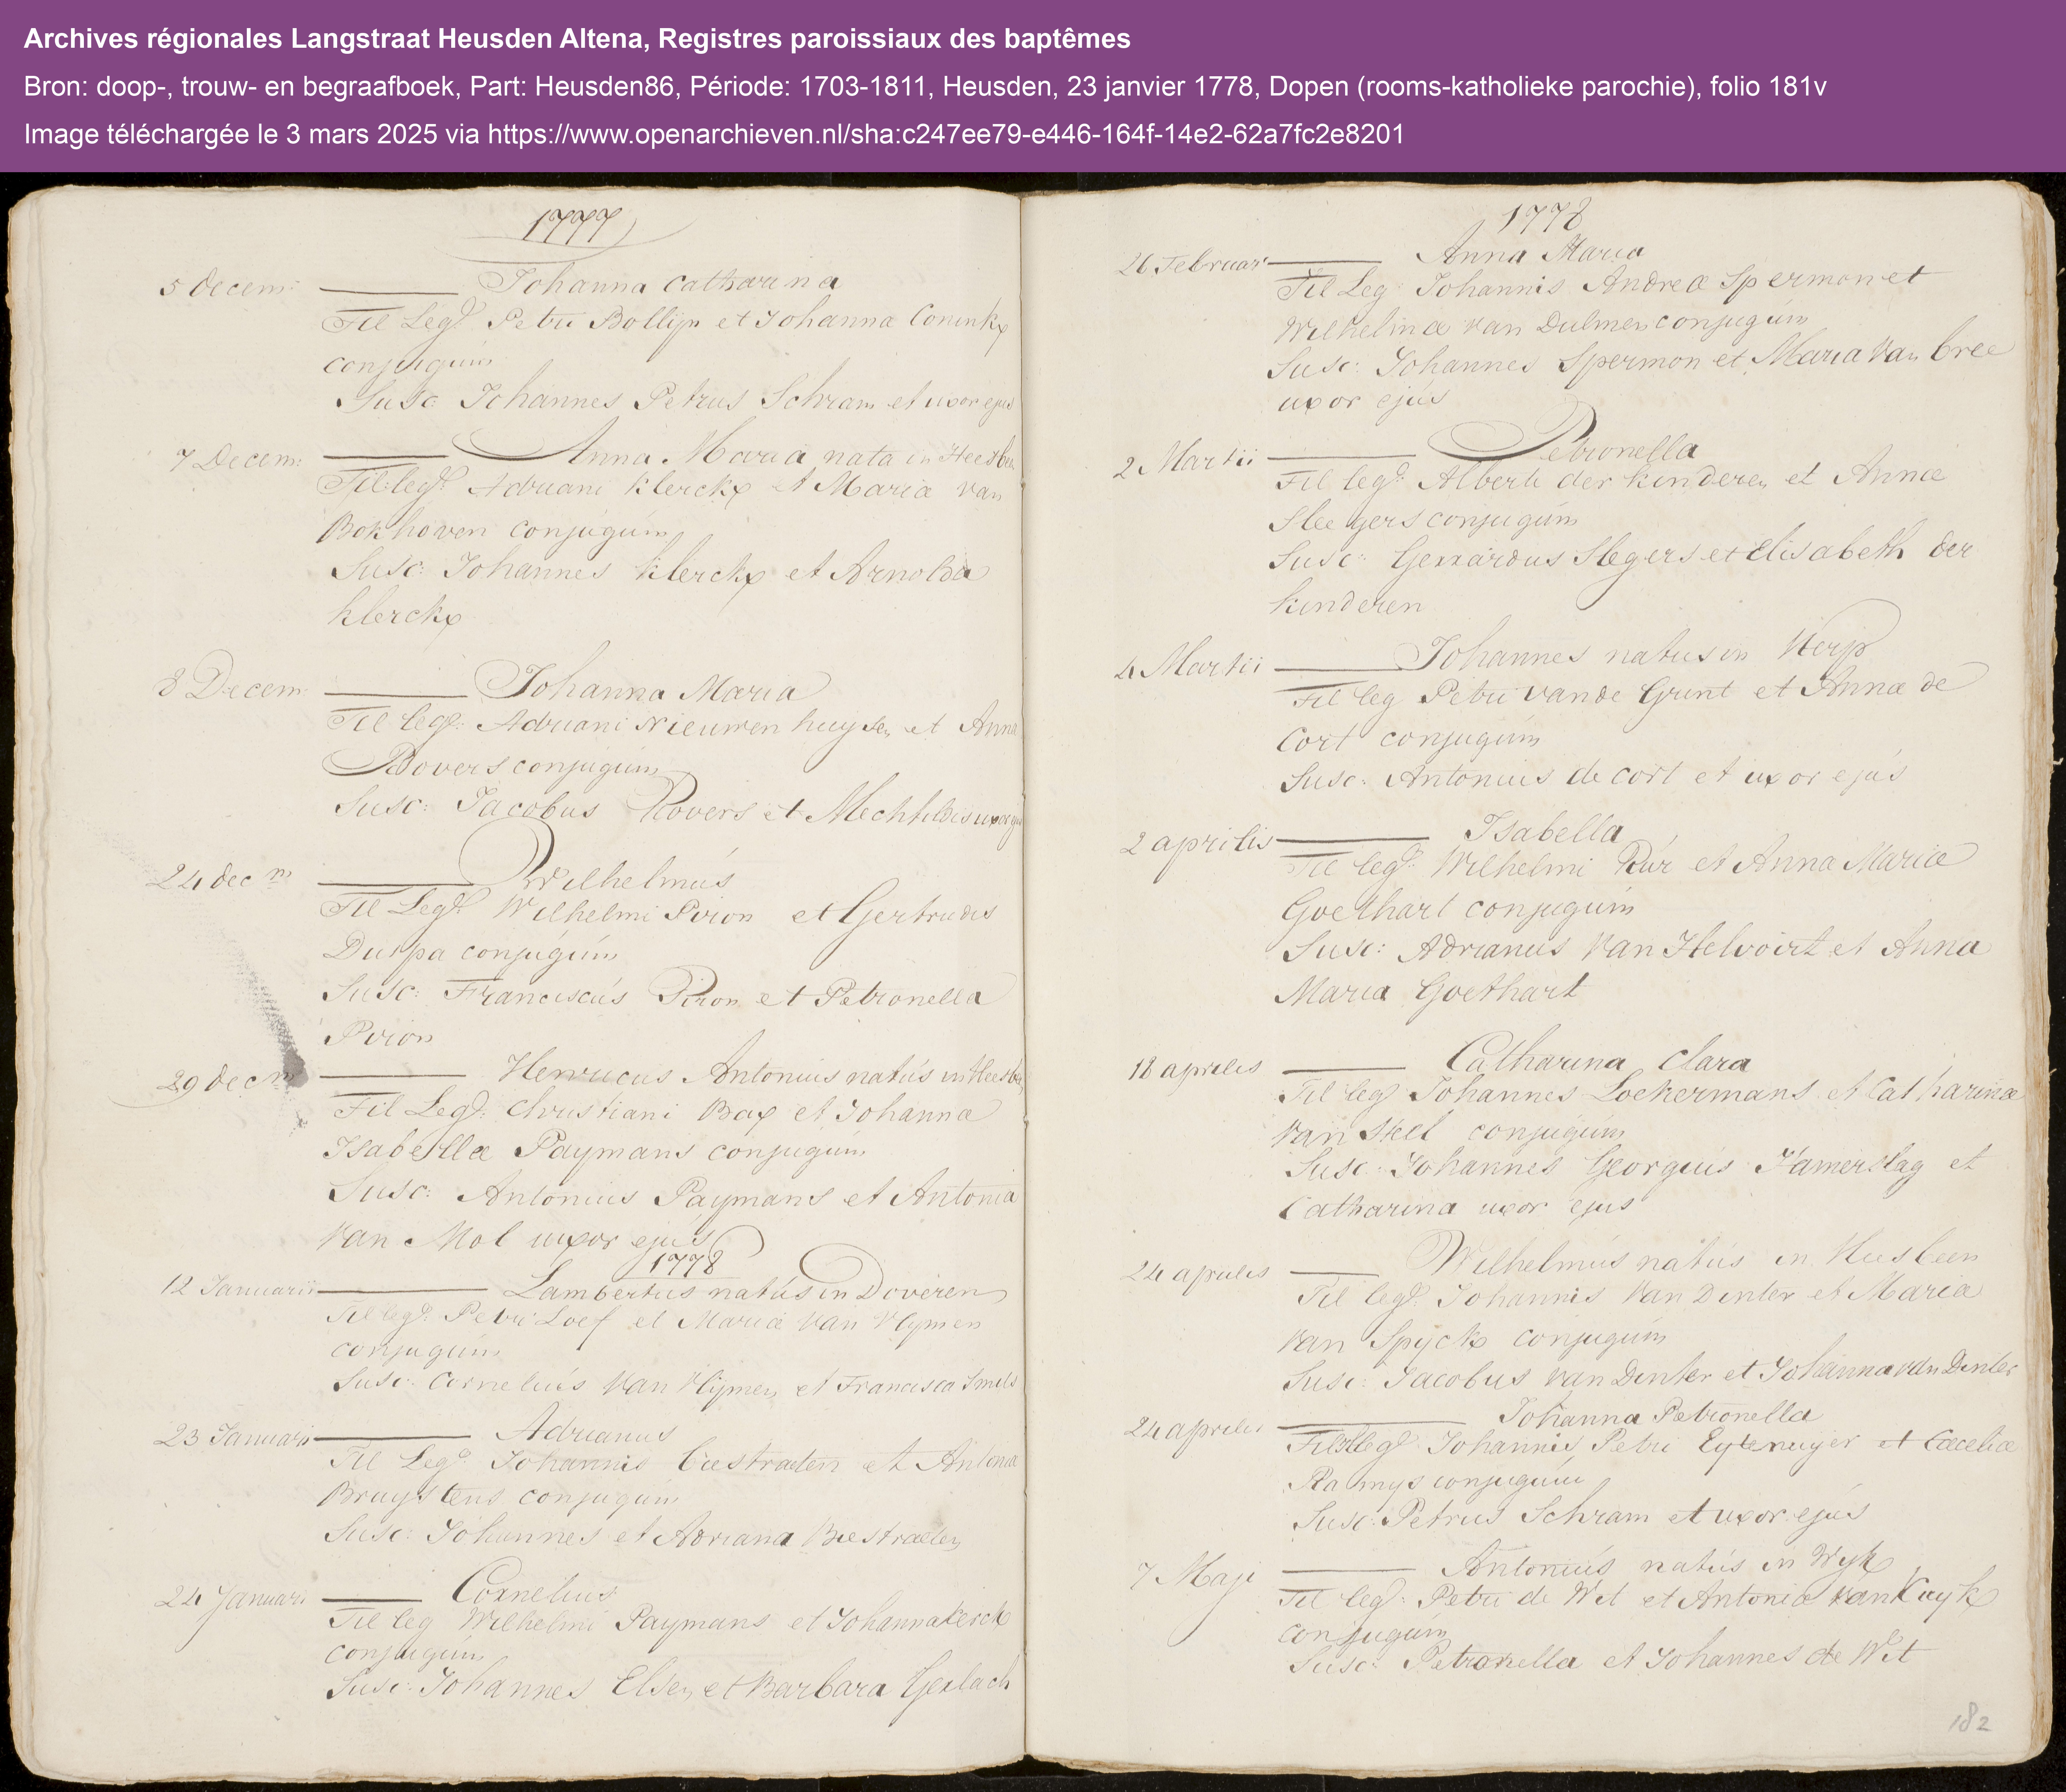 Archives régionales Langstraat Heusden Altena, Registres paroissiaux des baptêmes
Bron: doop-, trouw- en begraafboek, Part: Heusden86, Période: 1703-1811, Heusden, 23 janvier 1778, Dopen (rooms-katholieke parochie), folio 181v
Image téléchargée le 3 mars 2025 via https://www.openarchieven.nl/sha:c247ee79-e446-164f-14e2-62a7fc2e8201
1777
5 decem: Johanna Catharina
Fil Leg: Petri Bollijn et Johanna Coninkx
conjugum
Susc Johannes Petrus Schram et uxor ejus
7 Decem: Anna Maria nata in Heesbeen
Fil: leg: Adriani Klerckx et Maria van
Bokhoven conjugum
Susc: Johannes Klerckx et Arnolda
Klerckx
8 Decem Johanna Maria
Fil leg: Adriani Nieuwenhuysen et Anna
Rovers conjugum
Susc: Jacobus Rovers et Mechtildis uxor ejus
24 decm Wilhelmus
Fil Leg: Wilhelmi Piron et Gertrudis
Durpa conjugum
Susc: Franciscus Piron et Petronella
Piron
29 decm Henricus Antonius natus in Heesb
Fil Leg: Christiani Bax et Johanna
Isabella Paymans conjugum
Susc: Antonius Paymans et Antonia
Van Mol uxor ejus
1778
12 Januarii Lambertus natus in Doveren
Fil leg: Petri Loef et Maria van Vlymen
conjugum
Susc: Cornelius van Vlijmen et Francisca Smits
23 Januarii Adrianus
Fil Leg: Johannis Biestraeten et Antona
Bruystens conjugum
Susc: Johannes et Adriana Biestraeten
24 Januari Cornelius
Fil leg Wilhelmi Paymans et Johanna Kerckx
conjugum
Susc: Johannes Elsen et Barbara Gerlach
1778
26 Februari Anna Maria
Fil Leg Johannis Andreæ Spermon et
Wilhelmina van Dulmen conjugum
Susc: Johannes Spermon et Maria van bree
uxor ejus
2 Martii Petronella
Fil leg: Alberti der kinderen et Annæ
Sleegers conjugum
Susc: Gerrardus Slegers et Elisabeth der
kinderen
4 Martii Johannes natus in Herp
Fil leg Petri van de Grint et Annæ de
Cort conjugum
Susc: Antonius de cort et uxor ejus
2 aprilis Isabella
Fil leg: Wilhelmi Rur et Anna Mariæ
Goethart conjugum
Susc: Adrianus van Helvoirt et Anna
Maria Goethart
18 aprilis Catharina Clara
Fil leg Johannes Lockermans et Catharinæ
van Stel conjugum
Susc: Johannes Georgius Hamerslag et
Catharina uxor ejus
24 aprilis Wilhelmus natus in Heesbeen
Fil leg: Johannis van Dinter et Maria
van Spyck conjugum
Susc: Jacobus van Dinter et Johanna van Dinter
24 aprilis Johanna Petronella
Fil leg: Johannis Petri Eytenuyer et Cæciliæ
Ramys conjugum
Susc: Petrus Schram et uxor ejus
7 Maji Antonius natus in Wyk
Fil leg: Petri de Wit et Antoniæ van Kuyk
conjugum
Susc: Petronella et Johannes de Wit
182